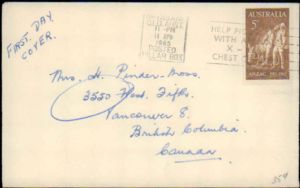 FIRST DAY
COVER.
11-PM
14 APR
1965
POSTED
PILLAR BOX
HELP FI
WITH A
X-
CHEST
AUSTRALIA
ANZAC 1915-1965
Mrs. H. Pinder-Moss
3550 West Fifth
Vancouver 8.
British Columbia
Canada
354